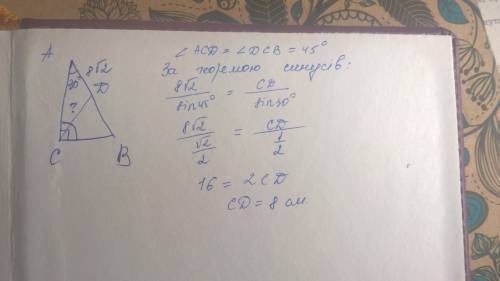 A
8√2
D
30
?
C
B
∠ACD = ∠DCB = 45°
За теоремою синусів:
8√2/sin45° = CD/sin30°
8√2/(√2/2) = CD/(1/2)
16 = 2CD
CD = 8 см